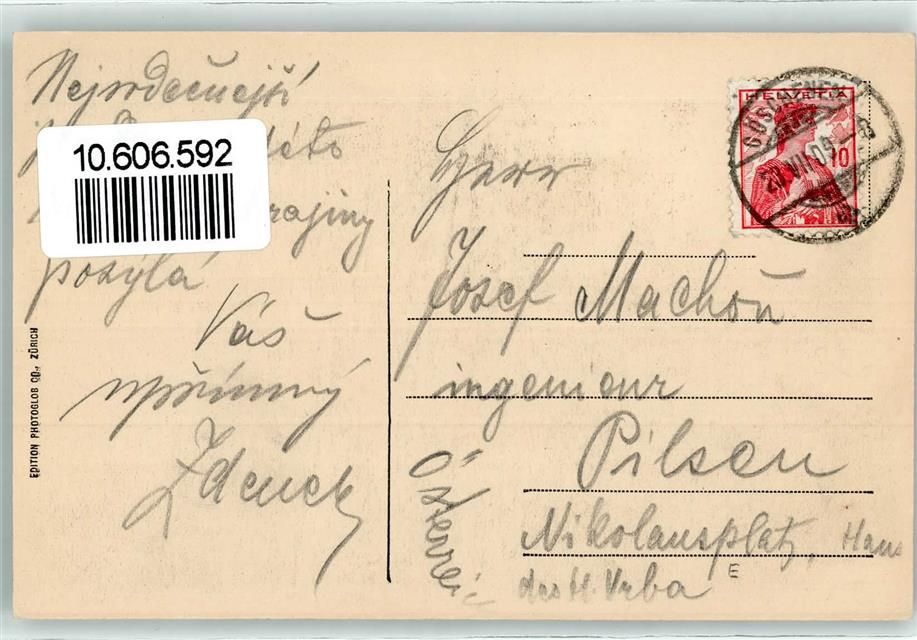 Nejsrdečnejší
této
krajiny
posýlá
Váš
upřímný
Zdenek
10.606.592
EDITION PHOTOGLOB CO., ZÜRICH
HELVETIA
10
GÖSCHENEN
Herr
Josef Machoň
ingenieur
Pilsen
Österrei
Nikolausplatz, Haus
des H. Vrba
E